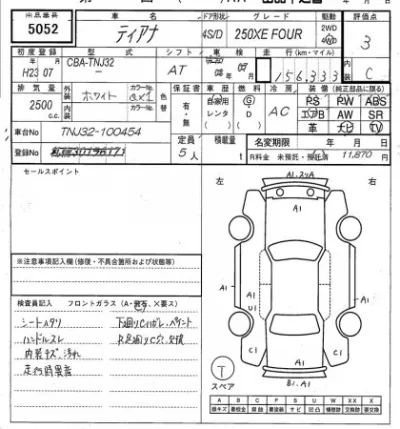 出品番号 車名 ドア形状 グレード 駆動 評価点
5052 ティアナ 4S/D 250XE FOUR 2WD 4WD 3
初度登録 型式 シフト 車検 走行(km・マイル) 内装
年 月
H23 07 CBA-TNJ32 AT 08年07月 156,333 C
排気量 外装 ホワイト カラーNo. 保証書 車歴 燃料 冷房 装備(純正部品に限る)
2500 c.c. 内装 カラーNo. 有・無 自家用 レンタ G D AC PS PW ABS
エアB AW SR
革 ナビ TV
車台No TNJ32-100454 定員 積載量 名変期限 年 月 日
登録No 5人 t R料金 未預託・預託済 11,870 円
セールスポイント
左 右
A1
※注意事項記入欄(修復・不具合箇所および改造点等)
検査員記入 フロントガラス(A・飛石、×要ス)
シートヘタリ
ハンドルスレ
内装キズ、汚れ
A1
A1
A1
A1
A1
A1
U1
C1
C1
T
スペア
B1.A1
A B C P S U W X XX